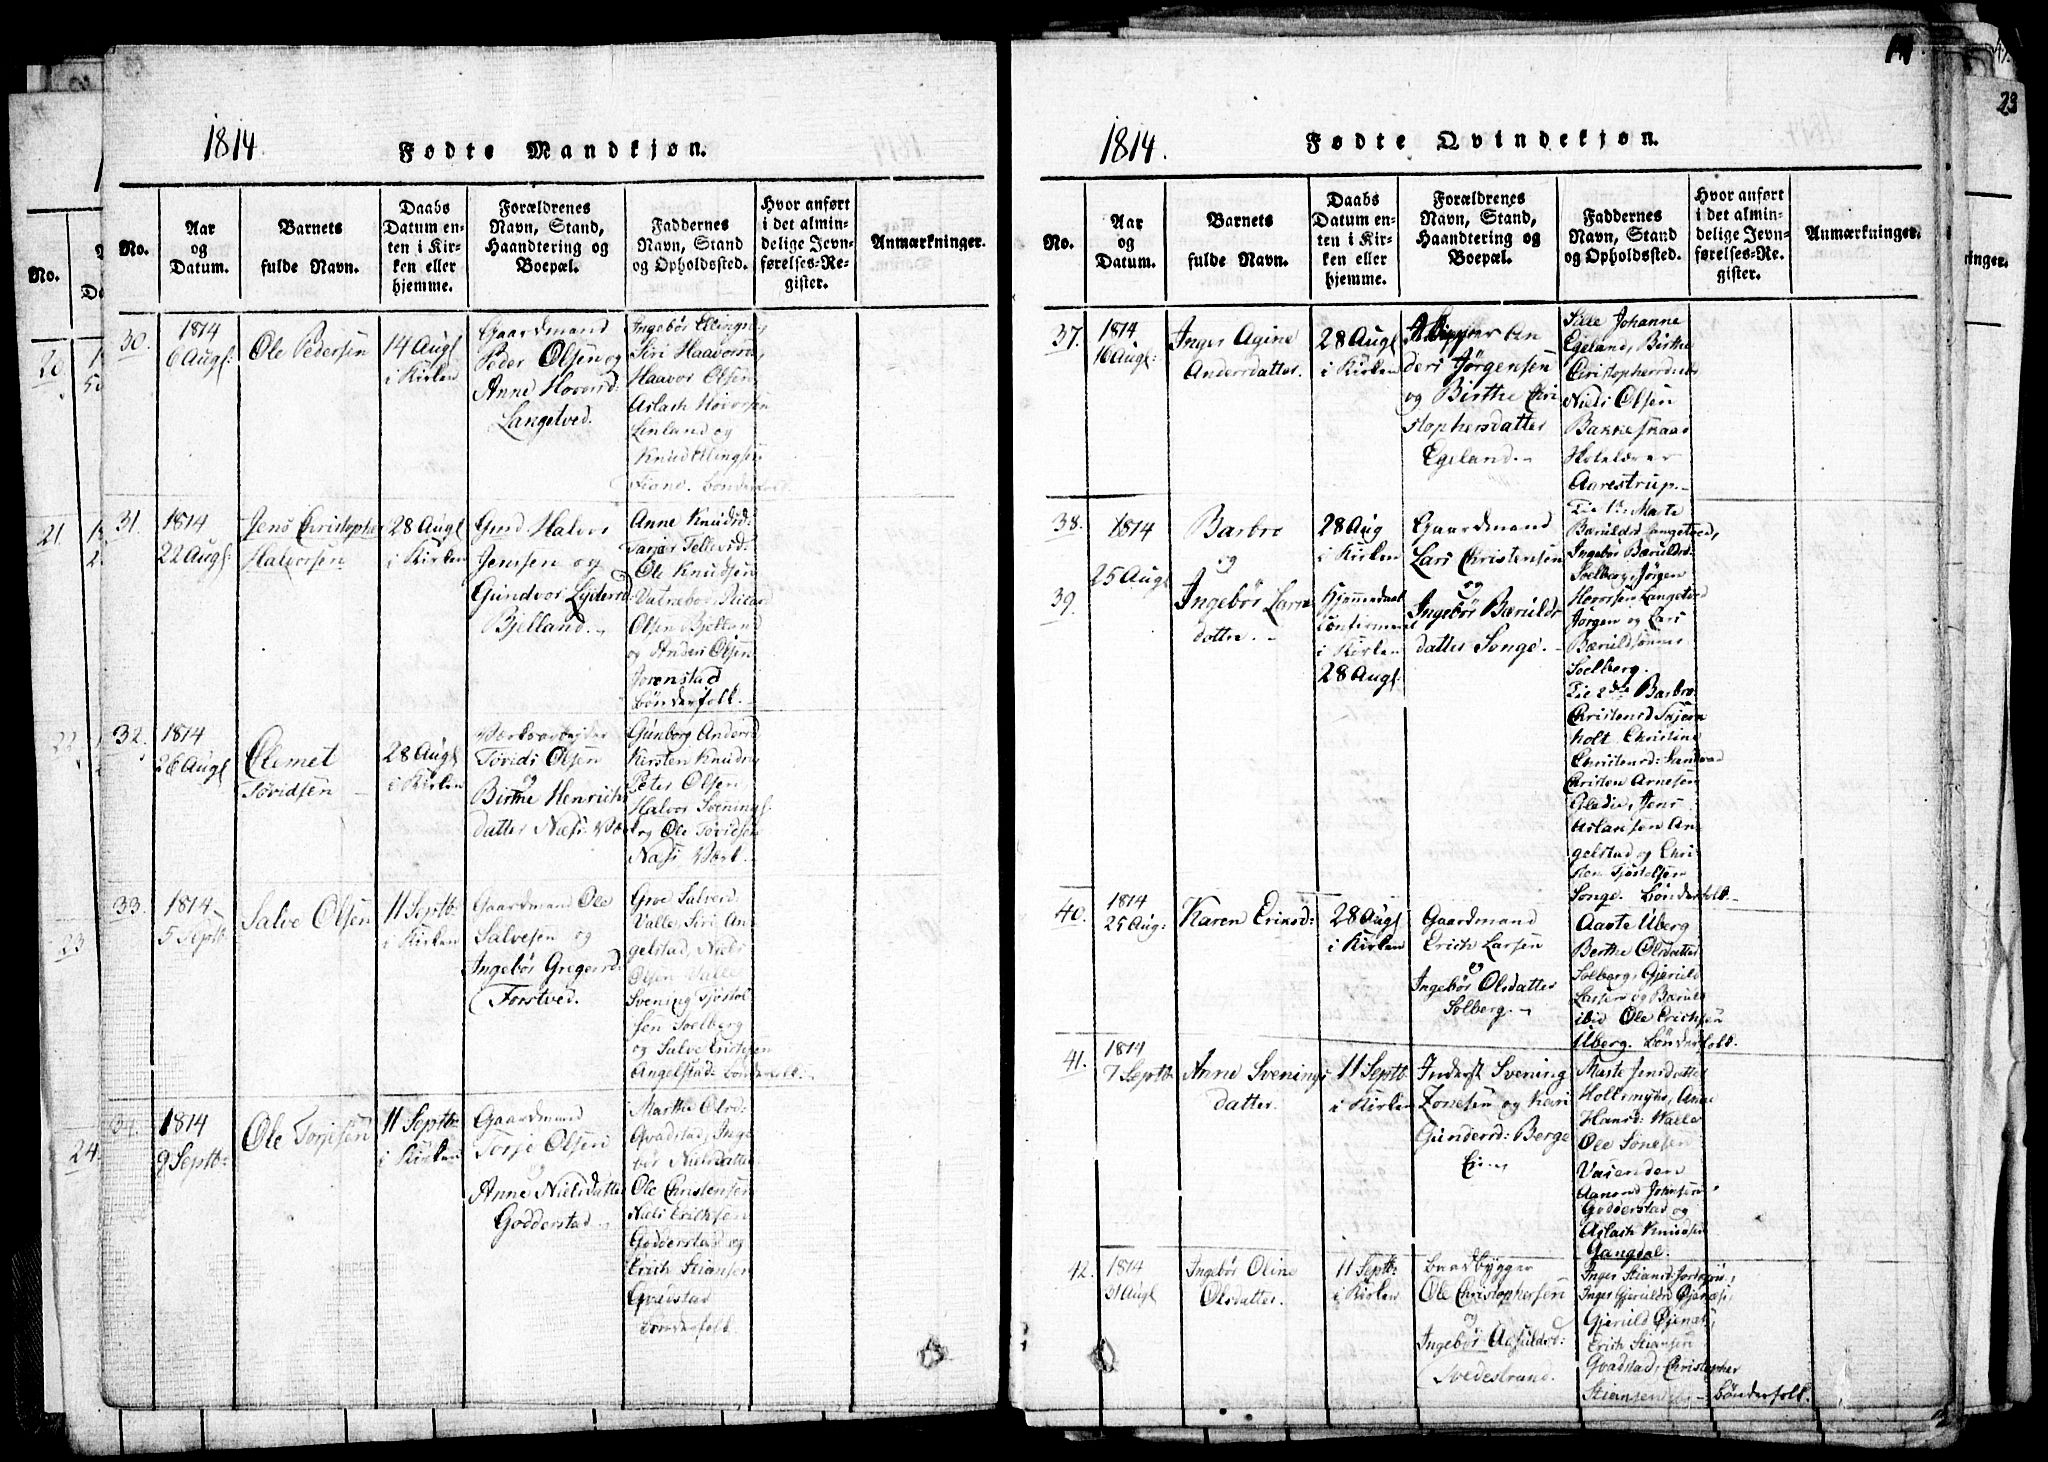 1814.
Fødte Mandkjøn.
No.
Aar
og
Datum.
Barnets
fulde Navn.
Daabs
Datum en-
ten i Kir-
ken eller
hjemme.
Forældrenes
Navn, Stand,
Haandtering og
Boepæl.
Faddernes
Navn, Stand
og Opholdssted.
Hvor anført
i det almin-
delige Jevn-
førelses-Re-
gister.
Anmærkninger.
30.
1814
6 Augs:
Ole Pedersen
14 Augs
i Kirken
Gaardmand
Peder Olsen og
Anne Hovorsd:
Langetved.
Ingebør Ellingsd,
Siri Haavorsd,
Haavor Olsen,
Aslach Hovorsen
Linland og
Knud Ellingsen
bønderfolk.
31.
1814
22 Augs:
Jens Christopher
Halvorsen
28 Augs
i Kirken
Gmd Halvor
Jensen og
Gundvor Lydersd:
Bjelland.
Anne Knudsd:
Ole Knudsen
Olsen Bjelland
og Anders Olsen
Jorenstad
bønderfolk.
32.
1814
26 Augs
Clemet
Tøridsen
28 Augs
i Kirken
Værksarbejder
Tørids Olsen
og
Birthe Henrichs
datter Næss Værk
Gunborg Andersd
Kirsten Knudsd,
Peter Olsen
Halvor Svenings
og Ole Tøridsen
Næss Værk.
33.
1814
5 Septb:
Salve Olsen
11 Septb:
i Kirken
Gaardmand Ole
Salvesen og
Ingebør Gregersd:
Torstved.
Groe Salvesd
Valle, Siri An-
gelstad, Niels
Olsen Valle
Svening Tjøstol
sen Soelberg
og Salve Erichsen
Angelstad: bønderfolk.
34.
1814
9 Septb:
Ole Torjesen
11 Septb:
i Kirken
Gaardmand
Torje Olsen
og
Anne Nielsdatter
Godderstad
Marthe Olsd:
Gvadstad, Inge
bør Nielsdatter
Ole Christensen
Niels Erichsen
Godderstad og
Erich Stiansen
Gvadstad
bønderfolk.
14
1814.
Fødte Qvindekjøn.
No.
Aar
og
Datum.
Barnets
fulde Navn.
Daabs
Datum en-
ten i Kir-
ken eller
hjemme.
Forældrenes
Navn, Stand,
Haandtering og
Boepæl.
Faddernes
Navn, Stand
og Opholdssted.
Hvor anført
i det almin-
delige Jevn-
førelses-Re-
gister.
Anmærkninger.
37.
1814
16 Augs:
Inger Agine
Andersdatter.
28 Augs
i Kirken
Skipper An
ders Jørgensen
og Birthe Chri
stophersdatter
Egeland.
Sille Johanne
Egeland, Birthe
Christophersdatter
Niels Olsen
Bakkeskaas
Skolelærer
Aarestrup.
38.
39.
1814
25 Augs
Barbro
og
Ingebør Lars
datter.
28 Aug
i Kirken
Hjemmedaabt
Confirmeret
i Kirken
28 Augs.
Gaardmand
Lars Christensen
og
Ingebør Bærulds
datter Songe.
Til 1te Marte
Bæruldsd Langetved,
Ingebør Bæruldsd:
Soelberg, Jørgen
Hovorsen Langetved
Jørgen og Lars
Bæruldsønner
Soelberg.
Til 2de Barbro
Christensd Skjern
holt Christine
Christensd: Sandvad
Christen Arnesen
Gledie, Jens
Aslaksen An
gelstad og Chri-
sten Tjøstelsen
Songe. bønderfolk.
40.
1814
25 Aug:
Karen Eriksd:
28 Augs
i Kirken
Gaardmand
Erich Larsen
og
Ingebør Olsdatter
Solberg.
Aaste Uberg
Berthe Olsdatter
Solberg, Gjeruld
Larsen og Bæruld
ibid Ole Erichsen
Uberg. bønderfolk.
41.
1814
7 Septb.
Anne Svenings
datter.
11 Septb.
i Kirken
Inderst Svening
Zonesen og Kari
Gundersd: Berge
Ei
Marte Jensdatter
Hollsmyhr, Anne
Hansd: Walle
Ole Sonesen
Vaienden
Aanond Johnsen
Godderstad og
Aslach Knudsen
Gangdal.
42.
1814
31 Augs
Ingebør Oline
Olsdatter.
11 Septb:
i Kirken
Baadbygger
Ole Christophersen
og
Ingebør Asfuldsd:
Svedestrand.
Inger Gjeruldsd Øjenæs,
Gjeruld Øjenæs,
Erich Stiansen
Gvadstad, Christopher
Stiansen bønderfolk.
20.
21.
22.
23
24.
No.
23